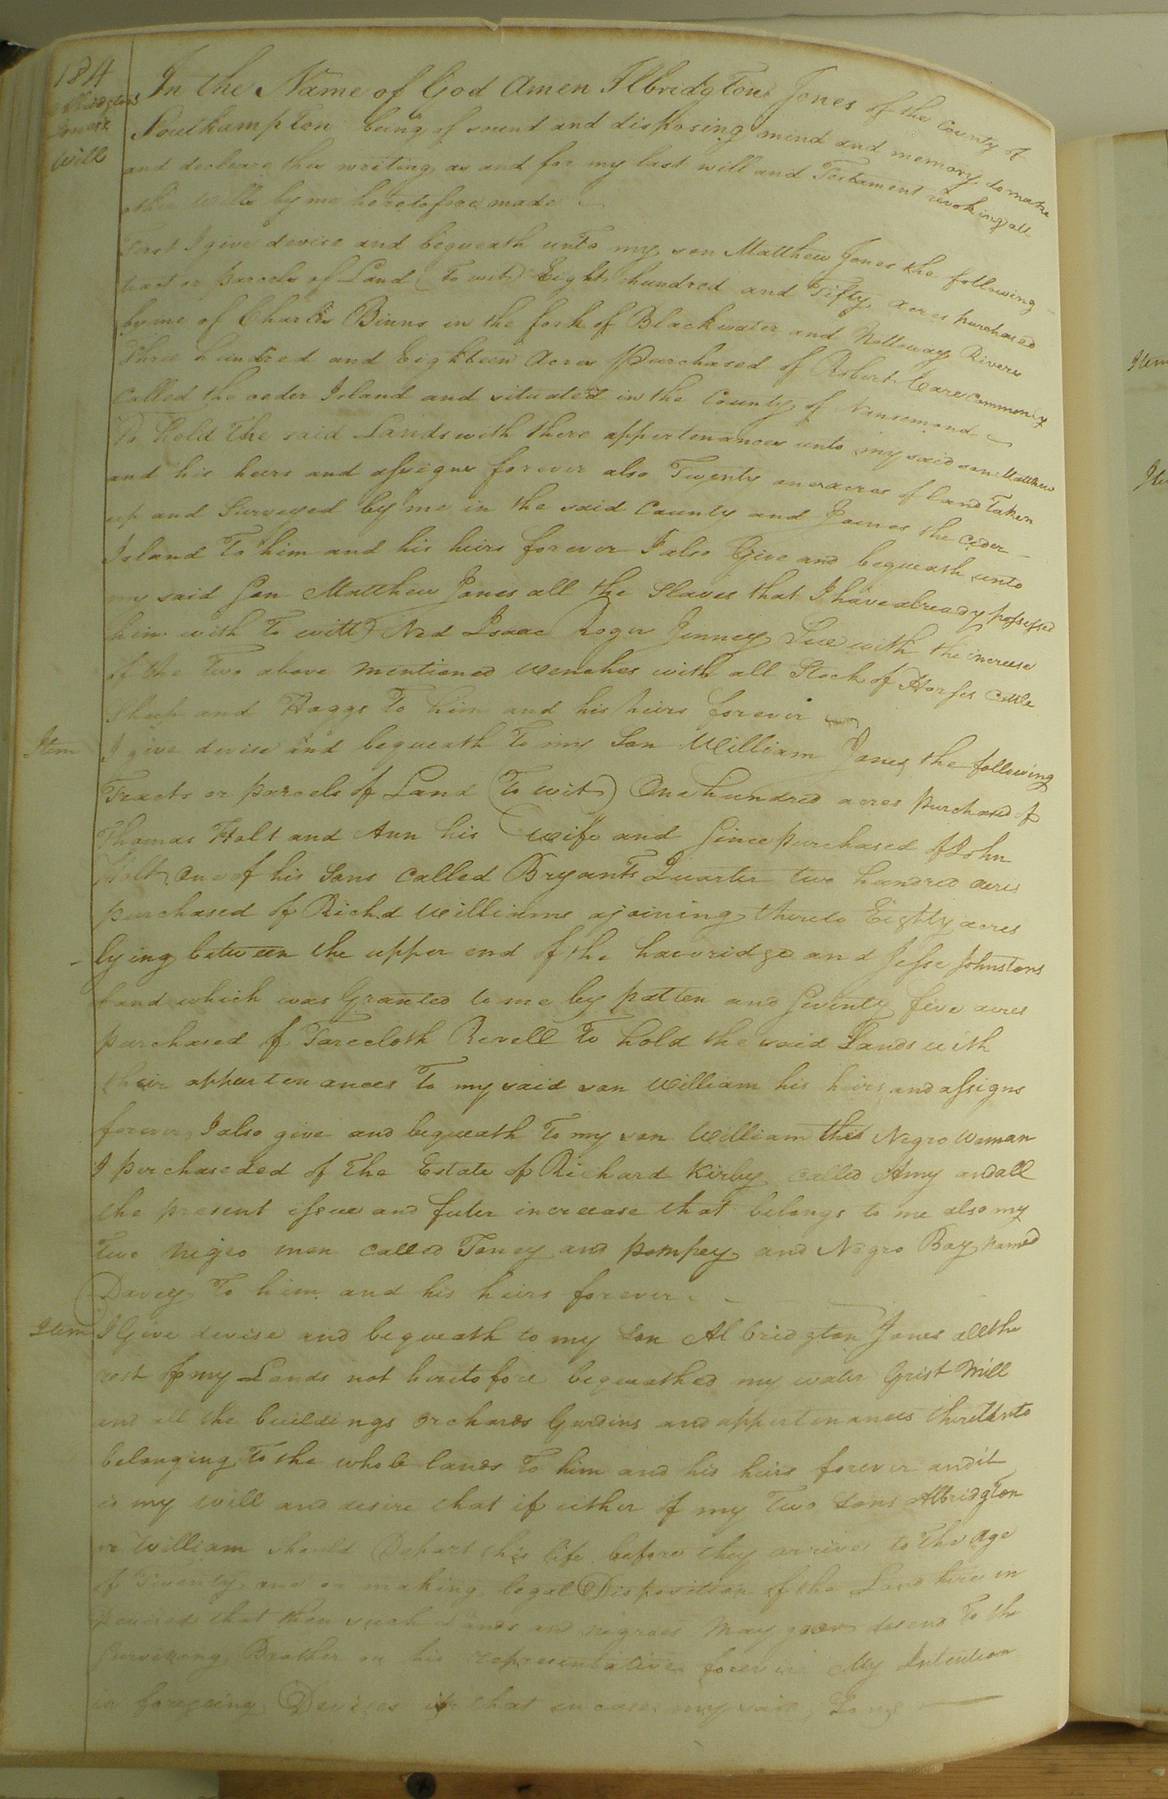 184
Albridgton
Jones's
Will
In the Name of God Amen I Albridgton Jones of the County of
Southampton being of sound and disposing mind and memory do make
and declare this writing as and for my last will and Testament revoking all
other wills by me heretofore made
First I give devise and bequeath unto my son Matthew Jones the following
tract or parcels of Land (To wit) Eight hundred and Fifty acres purchased
by me of Charles Binns in the fork of Blackwater and Nottoway Rivers
Three hundred and Eighteen Acres Purchased of Robert Carr Commonly
Called the ceder Island and situated in the County of Nansemond
To Hold the said Lands with there appertenances unto my said son Matthew
and his heirs and assigns forever also Twenty one acres of land Taken
up and Surveyed by me in the said County and Joines the ceder
Island To him and his heirs forever I also Give and bequeath unto
my said Son Matthew Jones all the Slaves that I have already possessed
him with To witt) Ned Isaac Roger Jenney Sue with the increase
of the Two above mentioned wenches with all Stock of Horses Cattle
Sheep and Haggs To him and his heirs forever
Item I give devise and bequeath to my Son William Jones the following
Tracts or parcels of Land (To wit) One hundred acres purchased of
Thomas Holt and Ann his wife and Since purchased of John
Holt One of his Sons Called Bryants Quarter two hundred acres
purchased of Richd Williams ajoining thereto Eighty acres
lying between the upper end of the hawridge and Jesse Johnstons
Land which was Granted to me by patten and Seventy five acres
purchased of Farecloth Revell To hold the said Lands with
their appurtenances To my said son William his heirs and assigns
forever I also give and bequeath To my son William this Negro Woman
I purchaseded of The Estate of Richard Kirby called Amy and all
the present issue and futer increease that belongs to me also my
Two negro men called Toney and pompey and Negro Boy named
Davey To him and his heirs forever
Item I Give devise and bequeath to my Son Albridgton Jones all the
rest of my Lands not heretofore bequeathed my water Grist Mill
and all the buildings orchards Gardins and appertenances thereunto
belonging To the whole lands To him and his heirs forever and it
is my will and desire that if either of my Two Sons Albridgton
or William should Depart this life before they arrive to the age
of Twenty one or making legal Disposition of the Land here in
that then such Lands and negroes may decend To the
Surviving Brother or his representatives forever My Intention
in foregoing Devises is that in case my said Sons